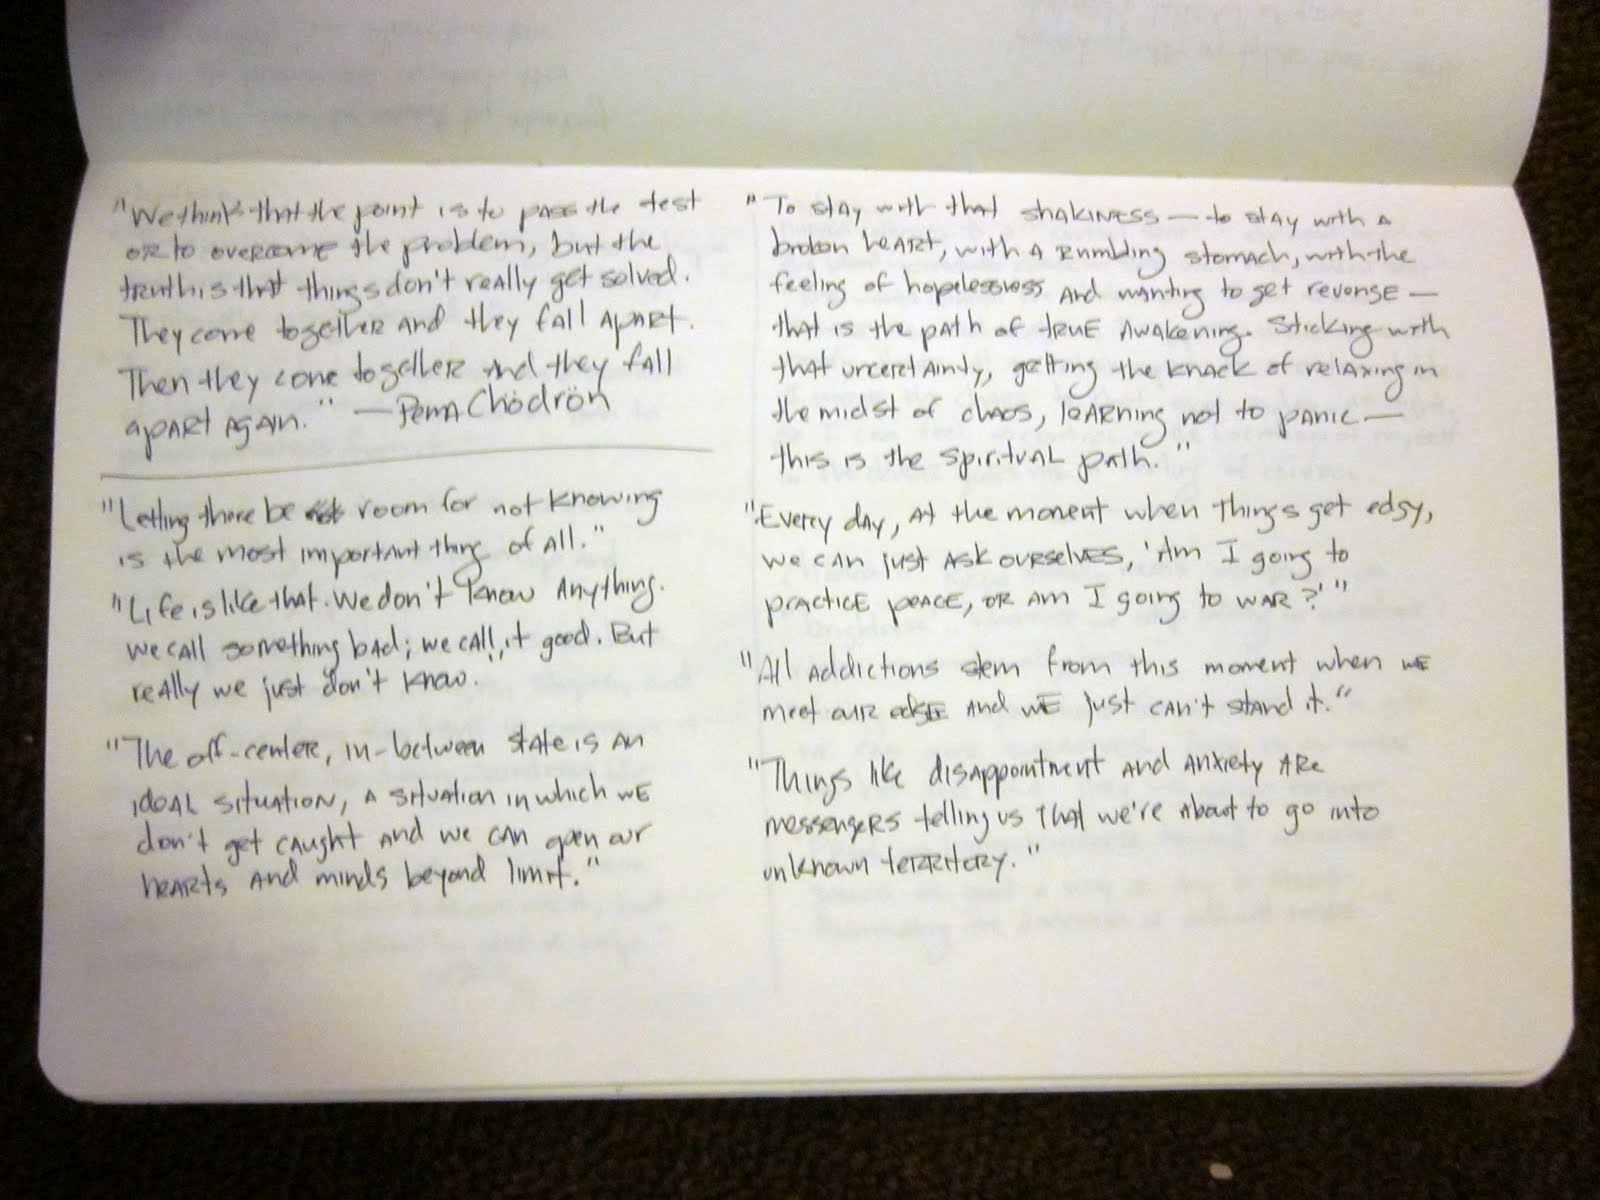 "We think that the point is to pass the test
or to overcome the problem, but the
truth is that things don't really get solved.
They come together and they fall apart.
Then they come together and they fall
apart again." — Pema Chödrön
"Letting there be room for not knowing
is the most important thing of all."
"Life is like that. We don't know anything.
We call something bad; we call it good. But
really we just don't know.
"The off-center, in-between state is an
ideal situation, a situation in which we
don't get caught and we can open our
hearts and minds beyond limit."
"To stay with that shakiness — to stay with a
broken heart, with a rumbling stomach, with the
feeling of hopelessness and wanting to get revenge —
that is the path of true awakening. Sticking with
that uncertainty, getting the knack of relaxing in
the midst of chaos, learning not to panic —
this is the spiritual path."
"Every day, at the moment when things get edgy,
we can just ask ourselves, 'Am I going to
practice peace, or am I going to war?'"
"All addictions stem from this moment when we
meet our edge and we just can't stand it."
"Things like disappointment and anxiety are
messengers telling us that we're about to go into
unknown territory."